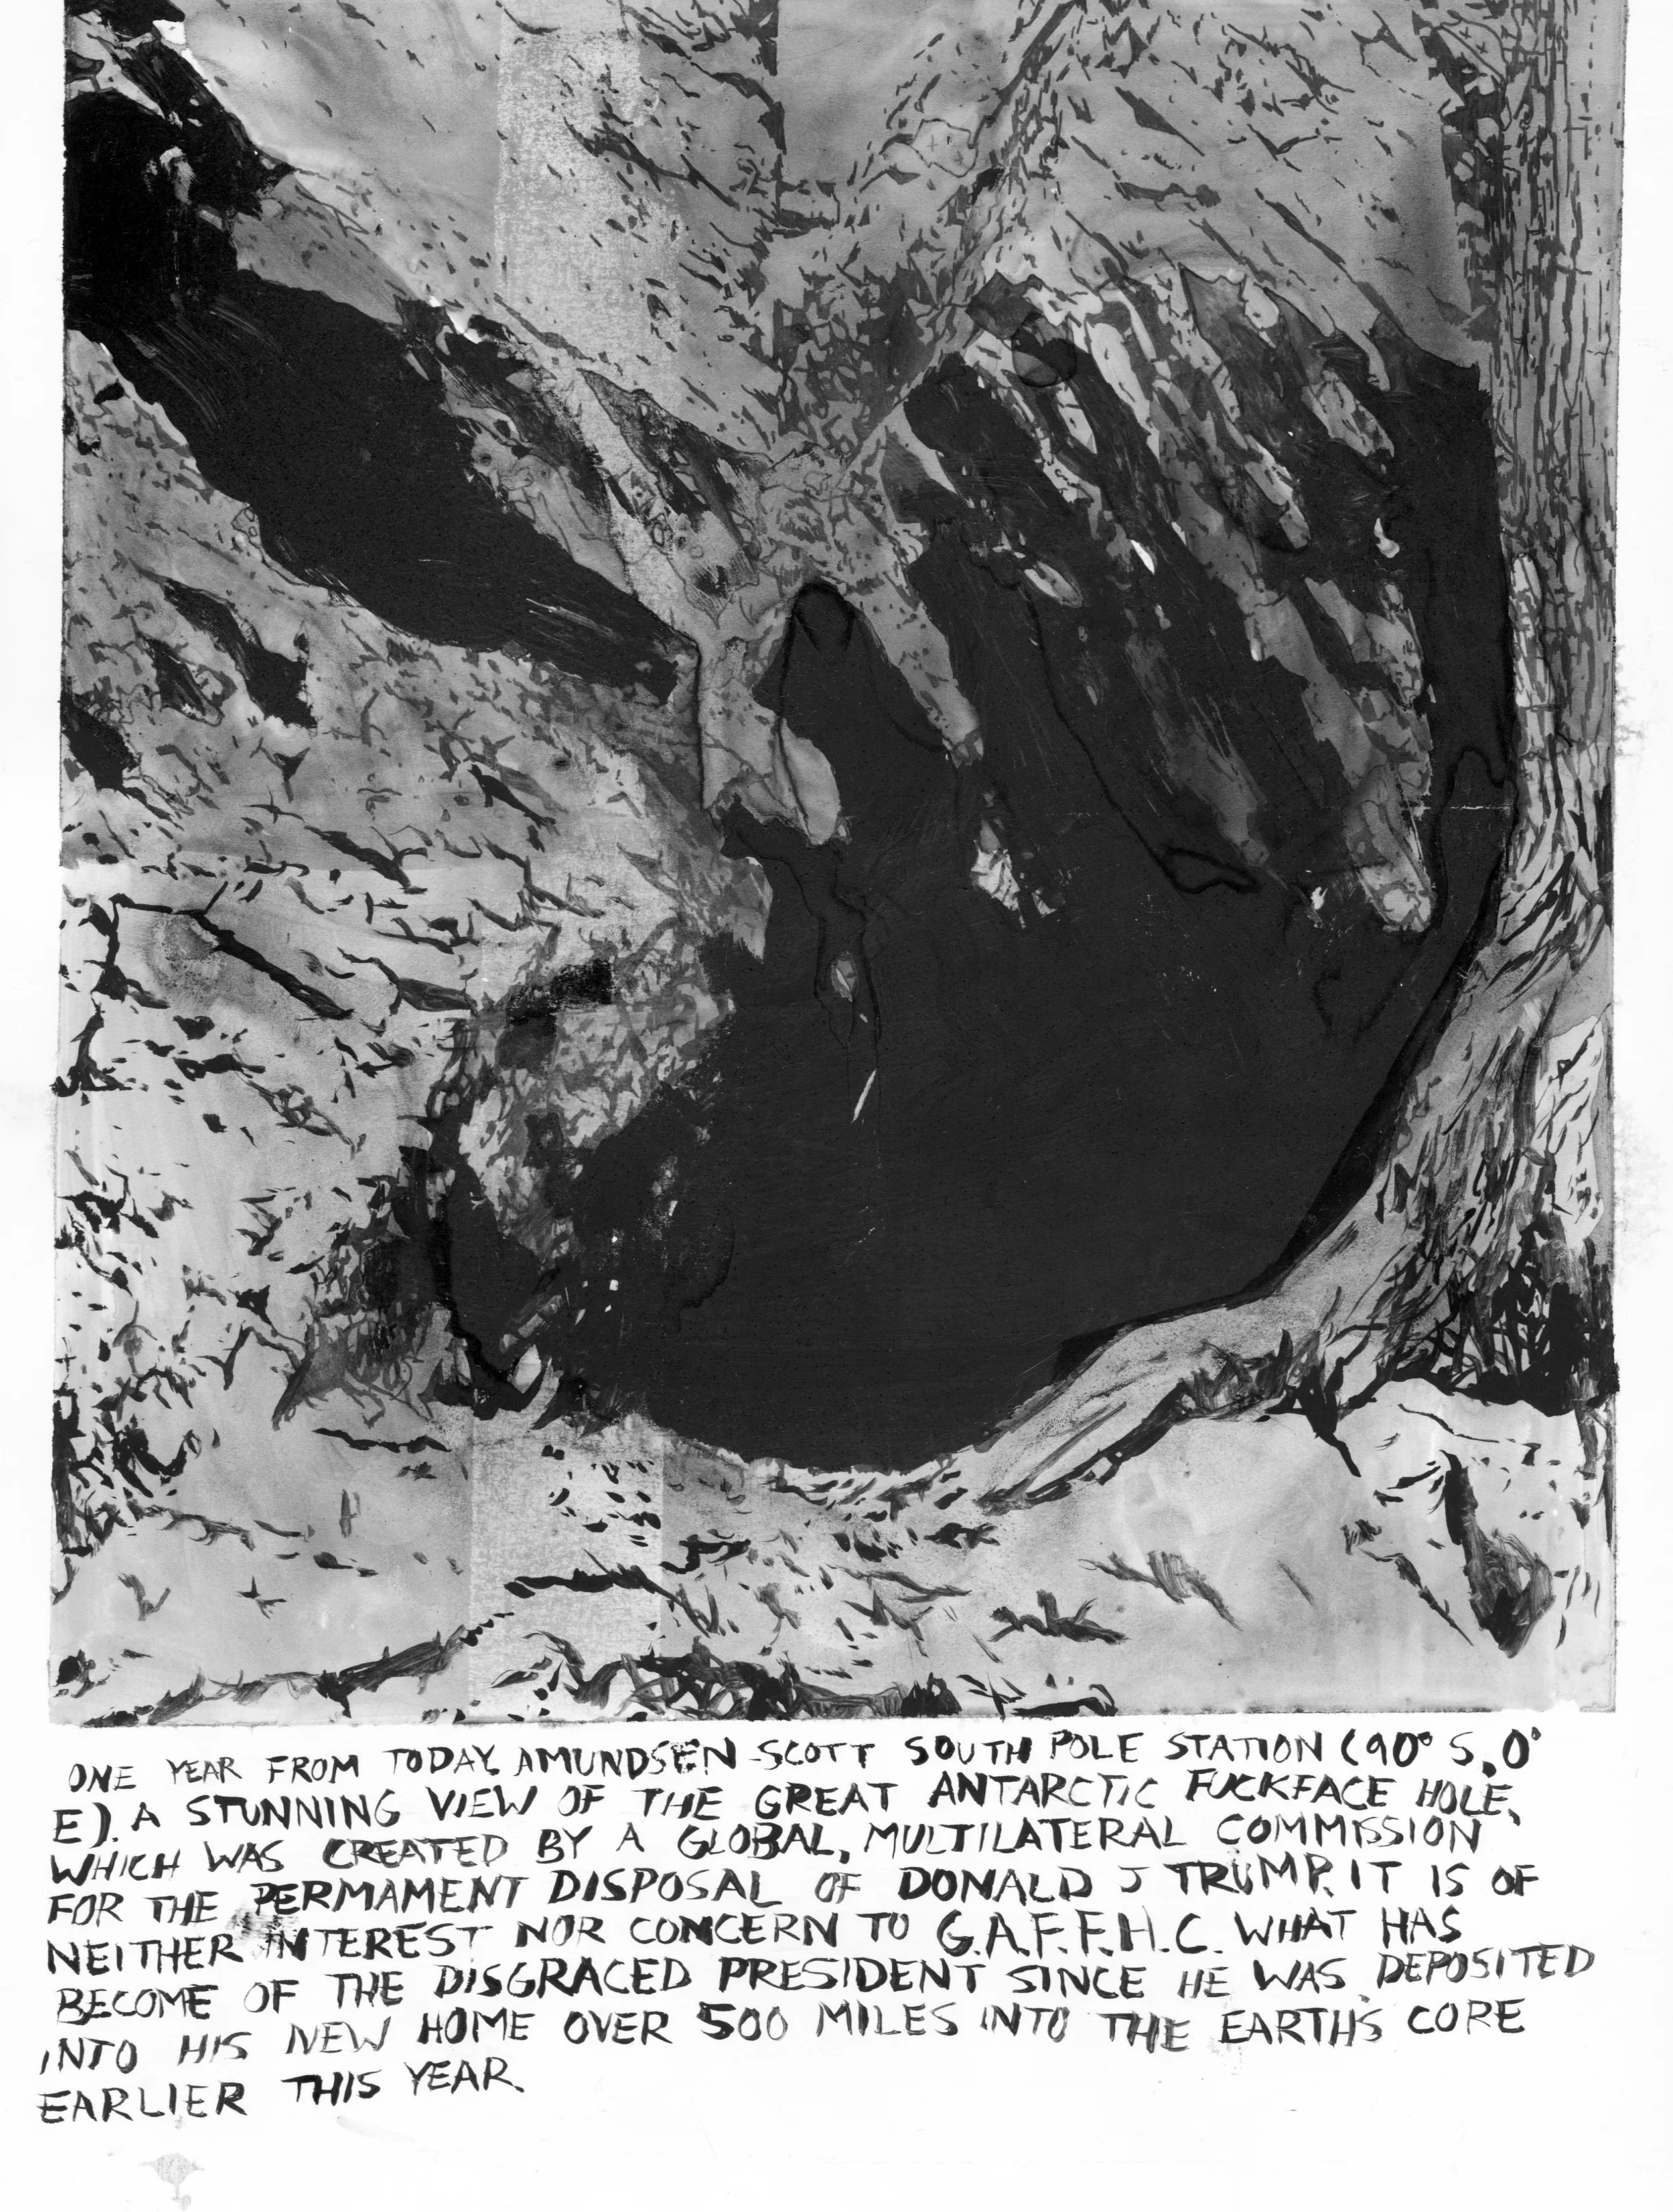 ONE YEAR FROM TODAY. AMUNDSEN-SCOTT SOUTH POLE STATION (90° S, 0°
E). A STUNNING VIEW OF THE GREAT ANTARCTIC FUCKFACE HOLE,
WHICH WAS CREATED BY A GLOBAL, MULTILATERAL COMMISSION
FOR THE PERMAMENT DISPOSAL OF DONALD J TRUMP. IT IS OF
NEITHER INTEREST NOR CONCERN TO G.A.F.F.H.C. WHAT HAS
BECOME OF THE DISGRACED PRESIDENT SINCE HE WAS DEPOSITED
INTO HIS NEW HOME OVER 500 MILES INTO THE EARTH'S CORE
EARLIER THIS YEAR.